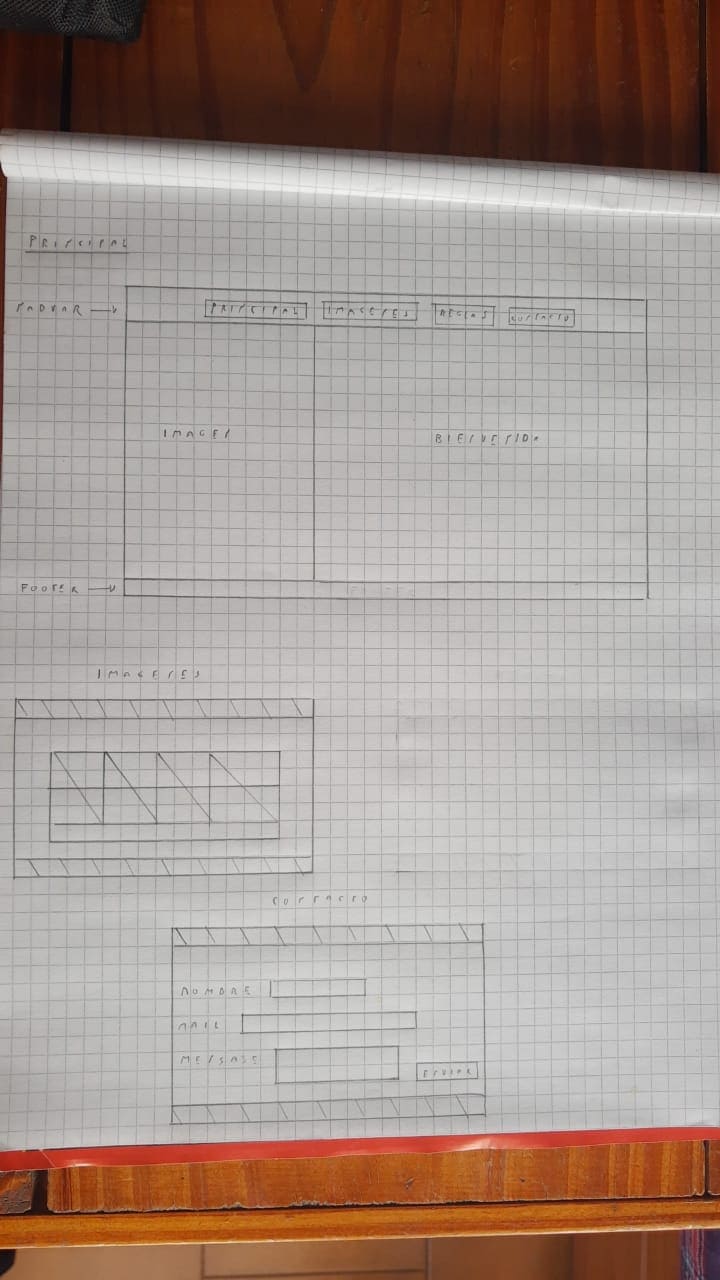 PRINCIPAL
NAVBAR
PRINCIPAL IMAGENES REGLAS CONTACTO
IMAGEN BIENVENIDA
FOOTER
IMAGENES
CONTACTO
NOMBRE
MAIL
MENSAJE
ENVIAR